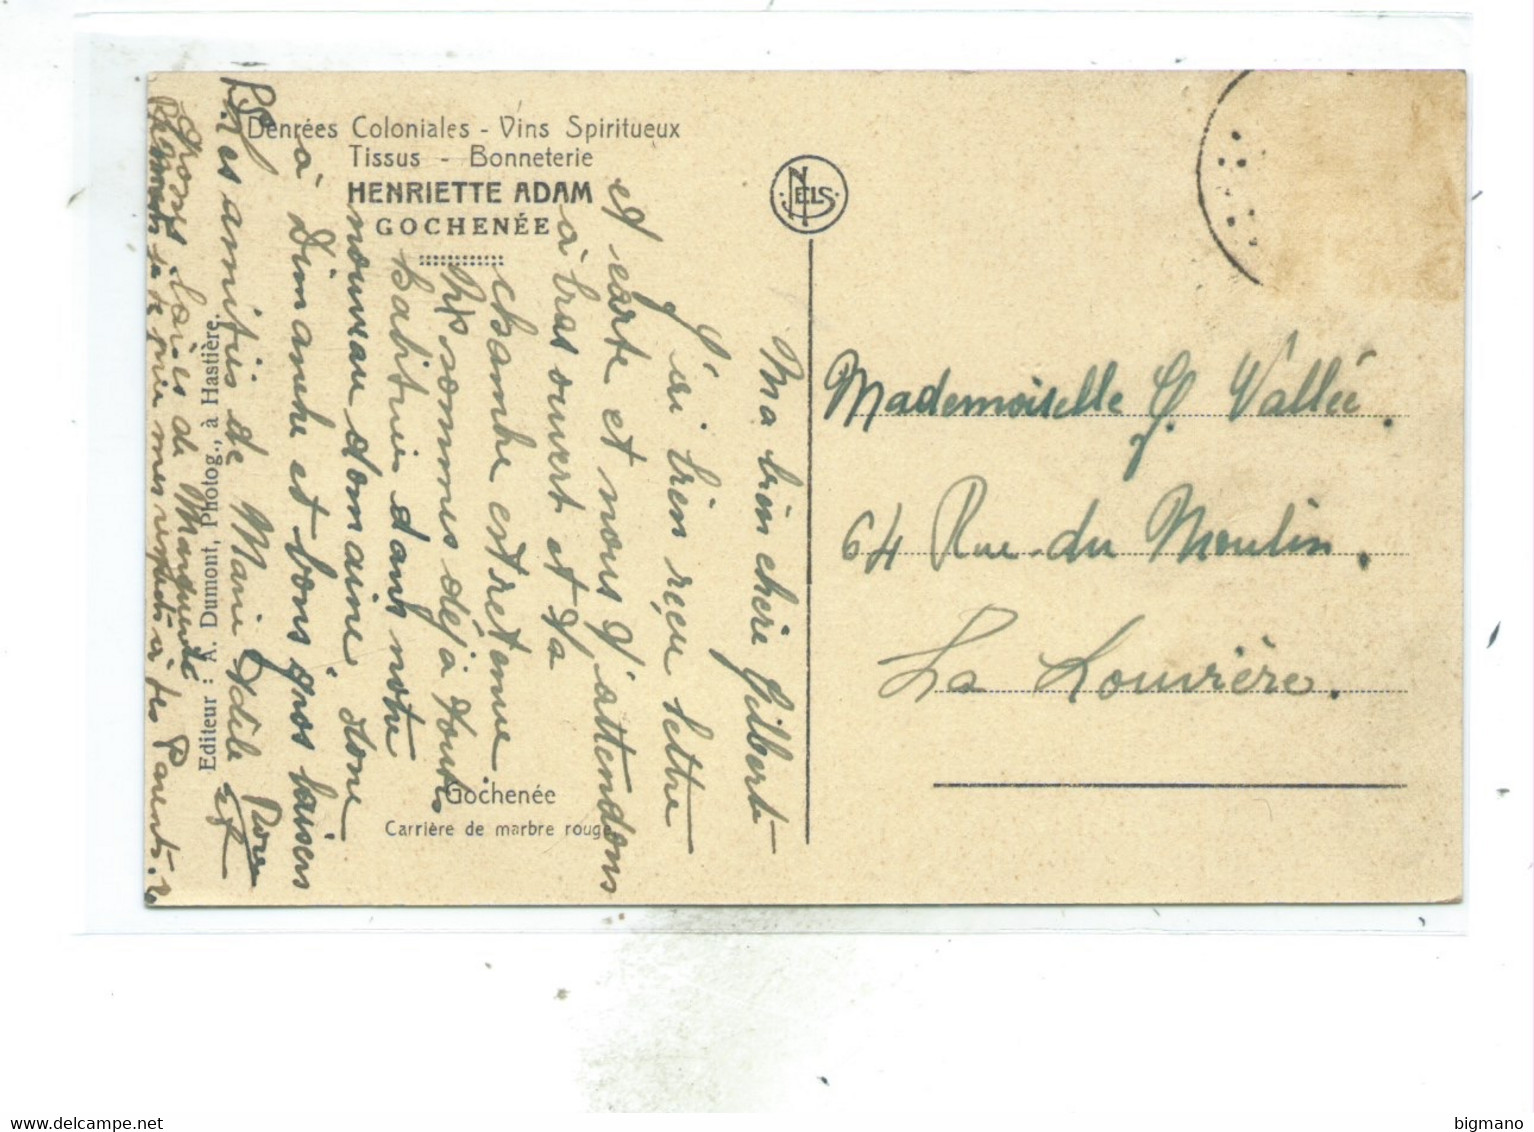 Denrées Coloniales - Vins Spiritueux
Tissus - Bonneterie
HENRIETTE ADAM
GOCHENÉE
NELS
Ma bien chère Gilberte
J'ai bien reçu lettre
et carte et nous t'attendons
à bras ouvert et ta
chambre est retenue
sommes déjà toutes
habituées dans notre
nouveau domaine donc
à Dimanche et bons gros baisers
Mes amitiés de Marie Adèle
PS
Gros baisers de Marguerite
mes respects à tes Parents.
Gochenée
Carrière de marbre rouge
Editeur : A. Dumont, Photog., à Hastière.
Mademoiselle G. Vallée.
64 Rue du Moulin.
La Louvière.
bigmano